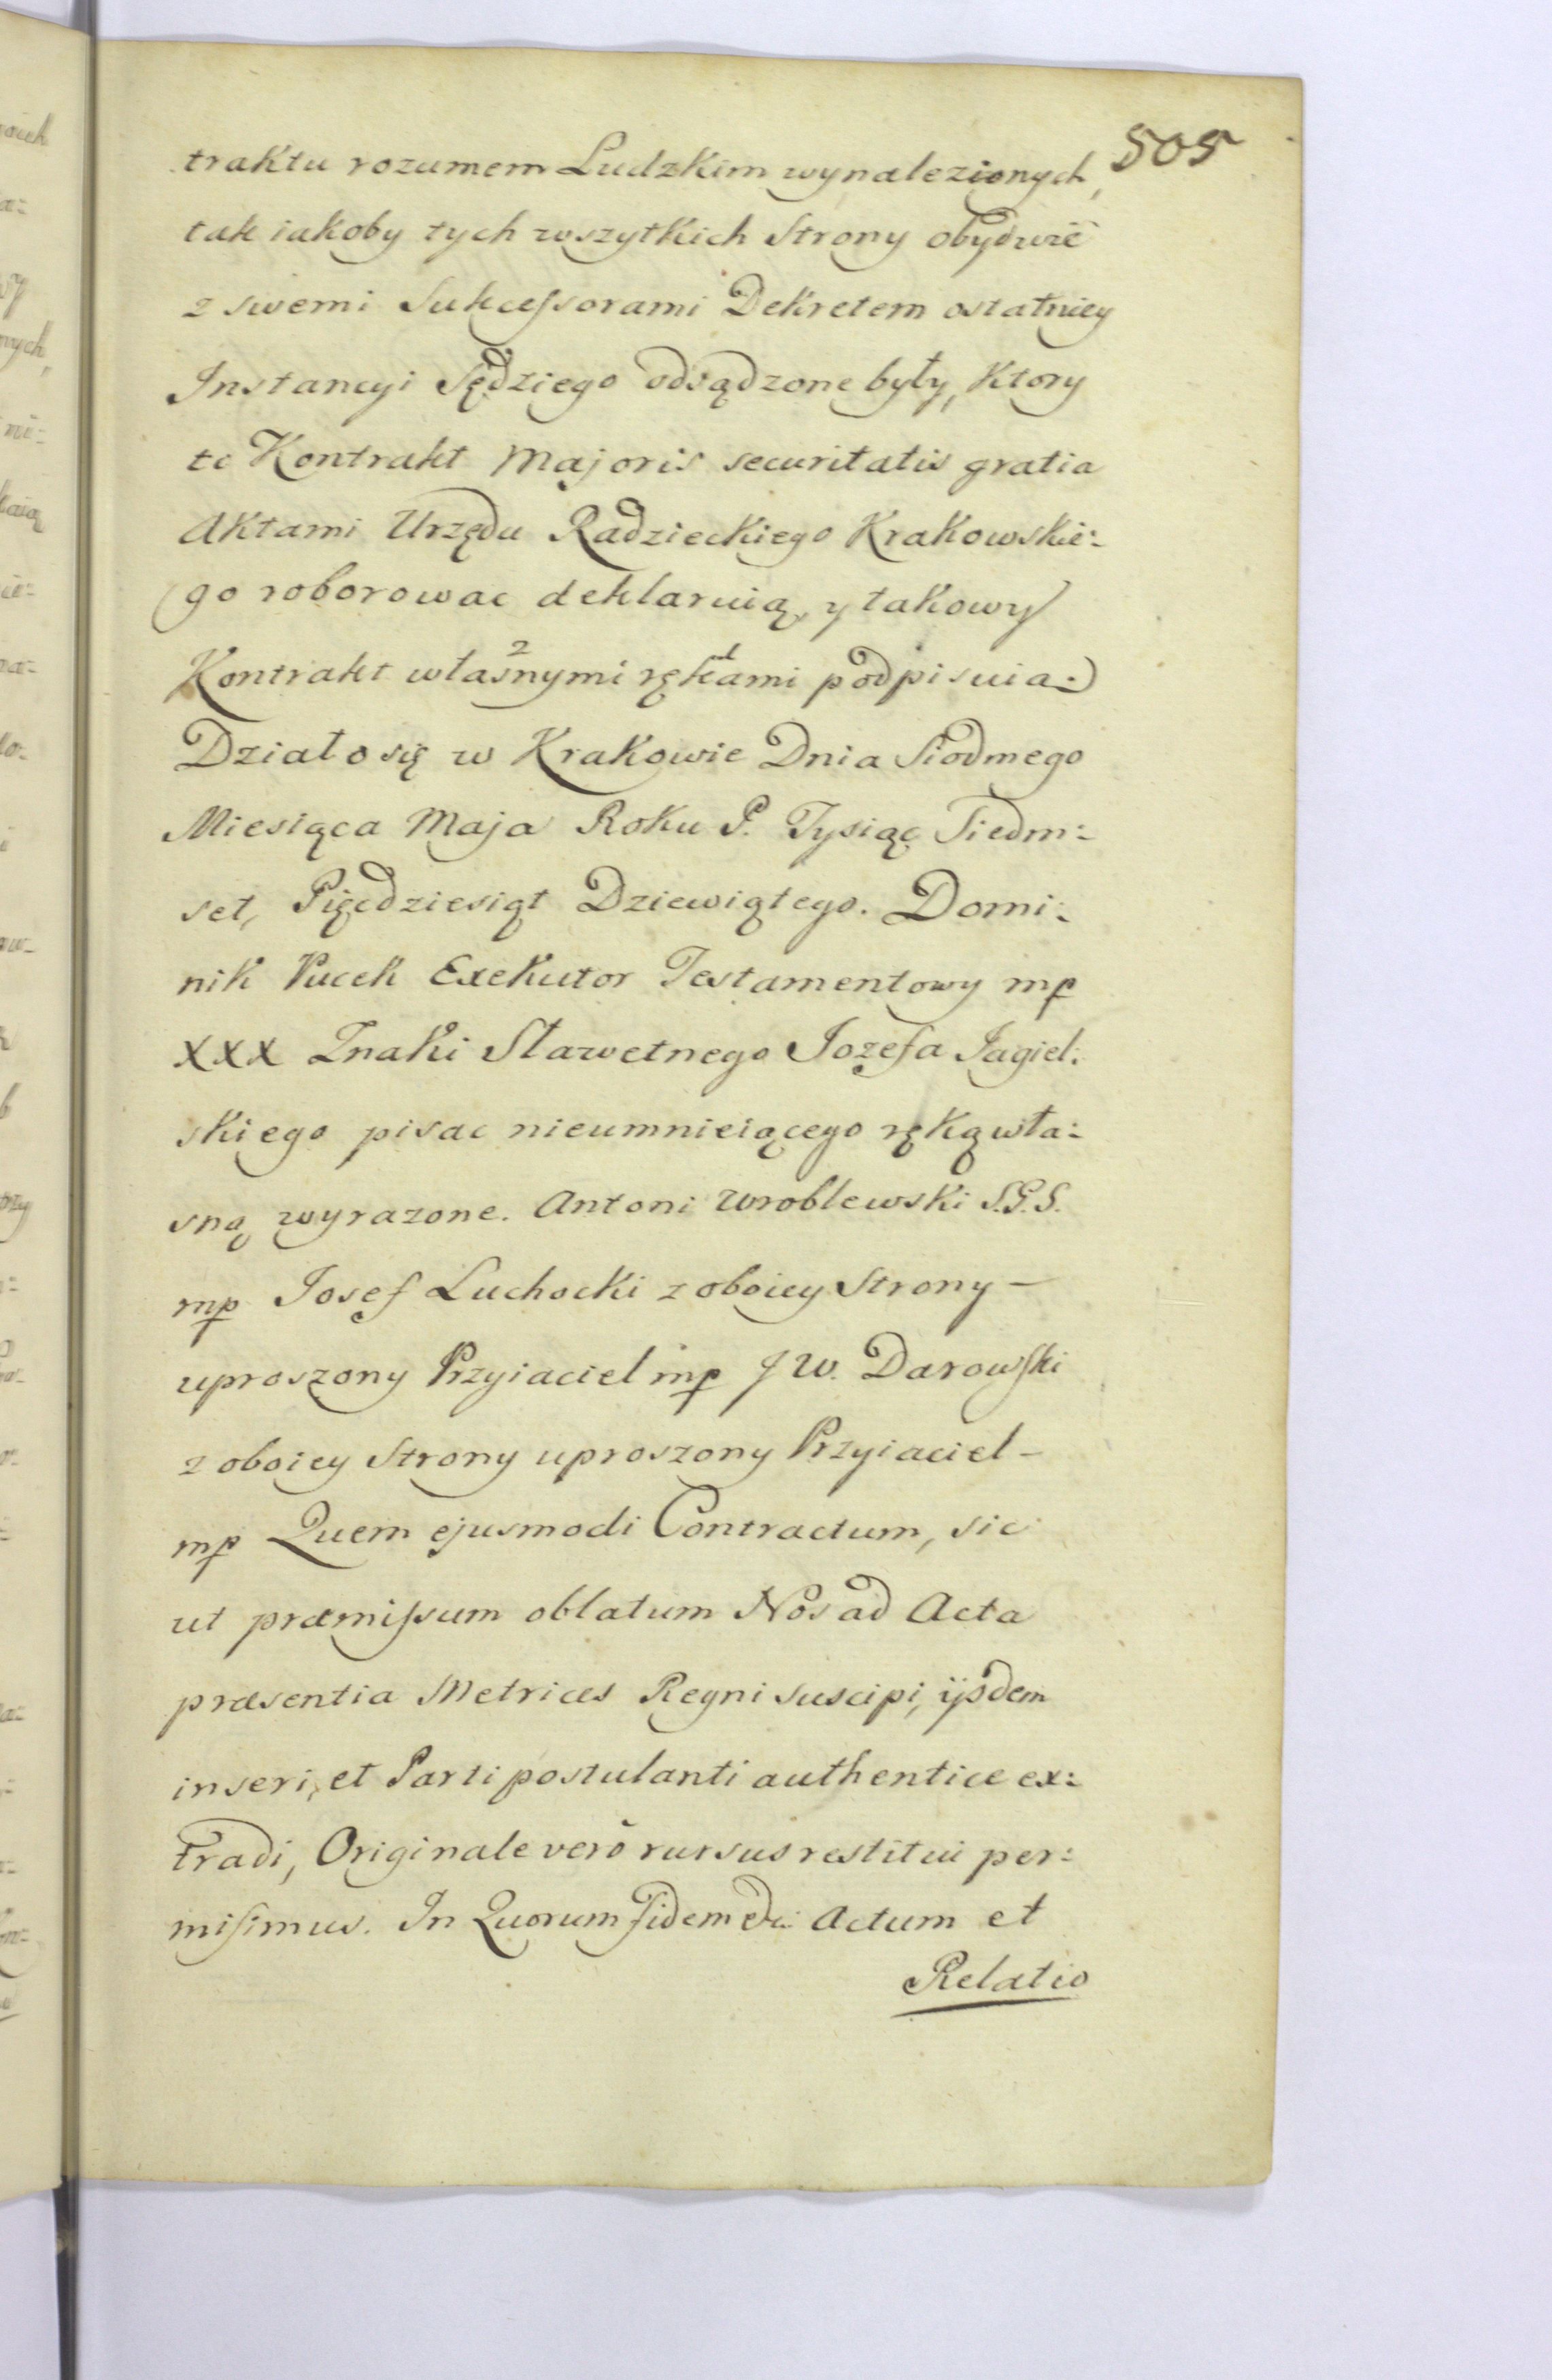 505
traktu rozumem Ludzkim wynalezionych,
tak iakoby tych wszytkich Strony obydwie
z swemi Sukcessorami Dekretem ostatniey
Instancyi Sędziego odsądzone były, Ktory
te Kontrakt Majoris securitatis gratia
Aktami Urzędu Radzieckiego Krakowskie:
go roborowac deklaruią, y takowy
Kontrakt własnymi rękami podpisuią:)
Działo się w Krakowie Dnia Siodmego
Miesiąca Maja Roku P. Tysiąc Siedm:
set, Pięcdziesiąt Dziewiątego. Domi:
nik Pucek Exekutor Testamentowy mp
XXX Znaki Sławetnego Jozefa Jagiel:
skiego pisac nieumnieiącego ręką wła:
sną wyrazone. Antoni Wroblewski S.G.S.
mp Josef Luchocki z oboiey Strony –
uproszony Przyiaciel mp J W. Darowski
z oboiey Strony uproszony Przyiaciel –
mp Quem ejusmodi Contractum, sic
ut præmissum oblatum Nos ad Acta
præsentia Metrices Regni suscipi, ijsdem
inseri, et Parti postulanti authentice ex:
tradi, Originale verò rursus restitui per:
misimus. In Quorum fidem &c: Actum et
Relatio